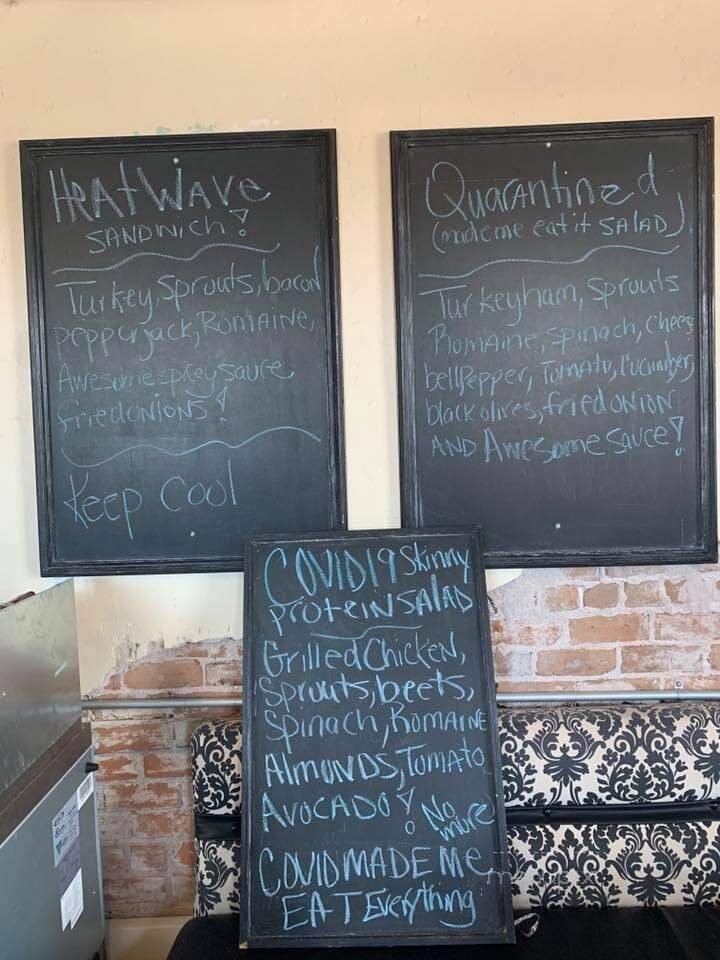 HEAT WAVE
SANDWICH!
Turkey, Sprouts, bacon
pepperjack, ROMAINE,
Awesome spicey sauce
friedonions!
Keep Cool
Quarantined
(made me eat it SALAD)
Turkeyham, Sprouts
Romaine, spinach, cheese
bellpepper, Tomato, Cucumber,
black olives, fried ONION
AND Awesome Sauce!
COVID19 Skinny
proteinSALAD
Grilled Chicken,
Sprouts, beets,
Spinach, ROMAINE
AlmONDS, TOMATO
AVOCADO! No
more
COVID MADE ME
EAT Everything